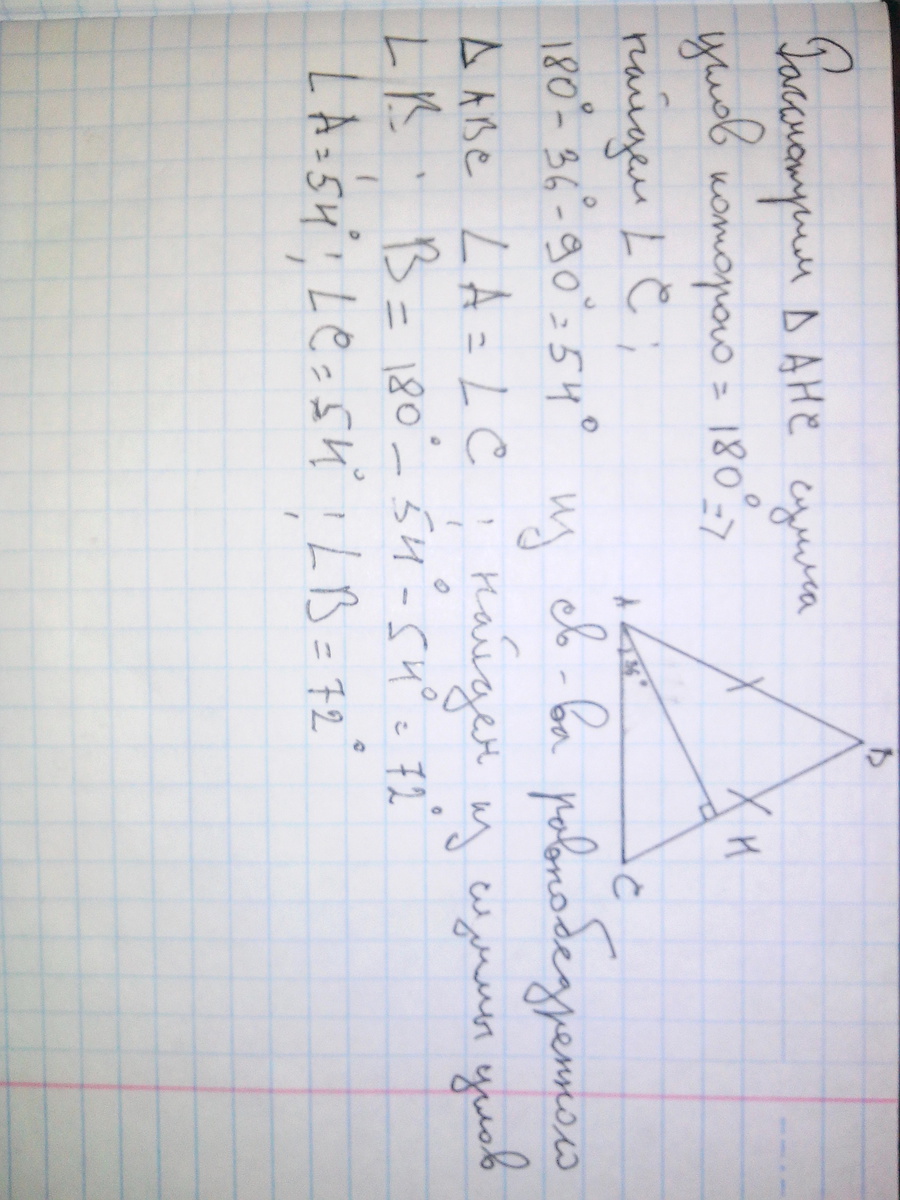 Рассмотрим Δ AHC сумма
углов которого = 180° =>
найдем ∠ C ;
180° - 36° - 90° = 54° из св-ва равнобедренного
Δ ABC ∠ A = ∠ C ; найдем из суммы углов
∠ B : B = 180° - 54° - 54° = 72°
∠ A = 54° ; ∠ C = 54° ; ∠ B = 72°
B
H
A
36°
C